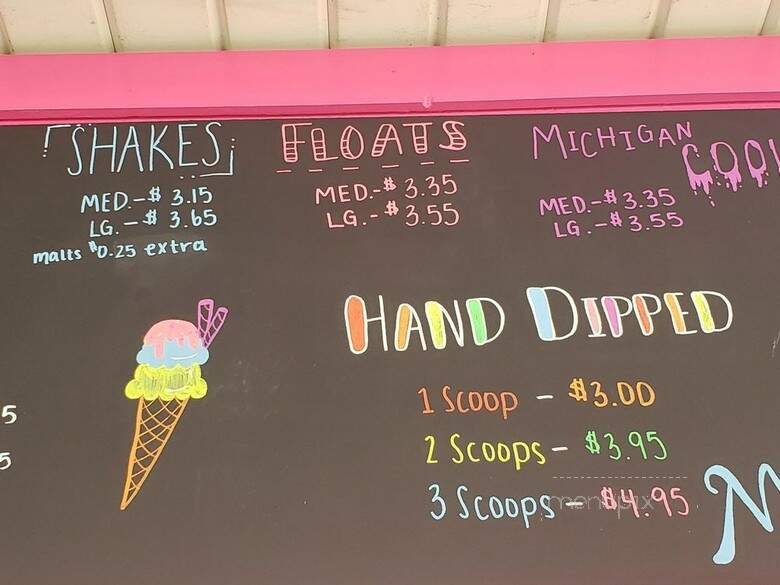 SHAKES
MED.-$ 3.15
LG. - $ 3.65
malts $0.25 extra
FLOATS
MED.-$ 3.35
LG. - $ 3.55
MICHIGAN
MED.-$ 3.35
LG. - $ 3.55
HAND DIPPED
1 Scoop - $3.00
2 Scoops - $3.95
3 Scoops - $4.95
5
5
menupix